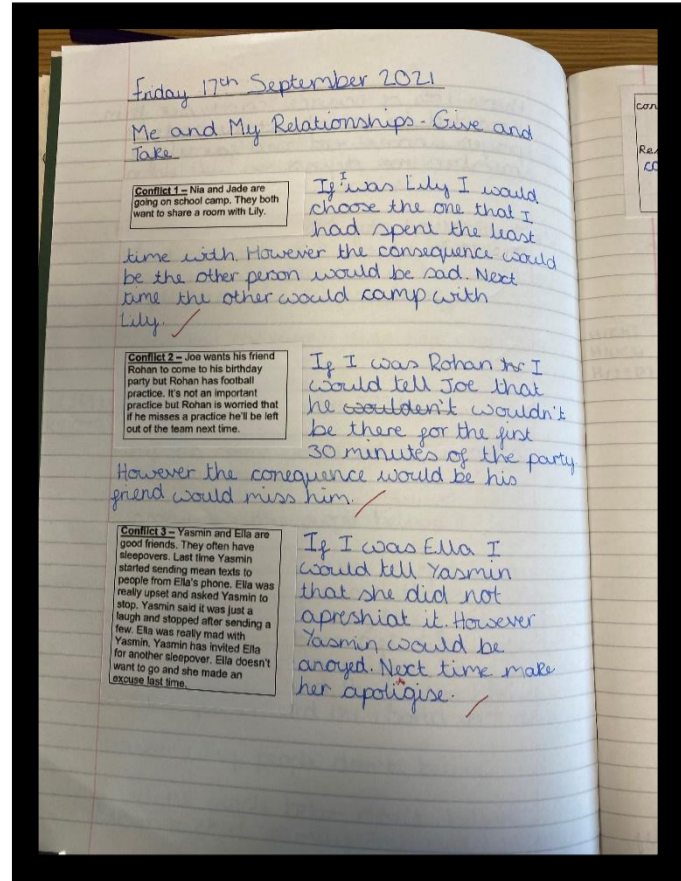 Friday 17th September 2021
Me and My Relationships - Give and
Take
Conflict 1 – Nia and Jade are
going on school camp. They both
want to share a room with Lily.
If I was Lily I would
choose the one that I
had spent the least
time with. However the consequence would
be the other person would be sad. Next
time the other would camp with
Lily.
Conflict 2 – Joe wants his friend
Rohan to come to his birthday
party but Rohan has football
practice. It's not an important
practice but Rohan is worried that
if he misses a practice he'll be left
out of the team next time.
If I was Rohan I
would tell Joe that
he woulden't wouldn't
be there for the first
30 minutes of the party
However the conequence would be his
friend would miss him.
Conflict 3 – Yasmin and Ella are
good friends. They often have
sleepovers. Last time Yasmin
started sending mean texts to
people from Ella's phone. Ella was
really upset and asked Yasmin to
stop. Yasmin said it was just a
laugh and stopped after sending a
few. Ella was really mad with
Yasmin. Yasmin has invited Ella
for another sleepover. Ella doesn't
want to go and she made an
excuse last time.
If I was Ella I
would tell Yasmin
that she did not
apreshiat it. However
Yasmin would be
anoyed. Next time make
her apoligise.
con
Re
co